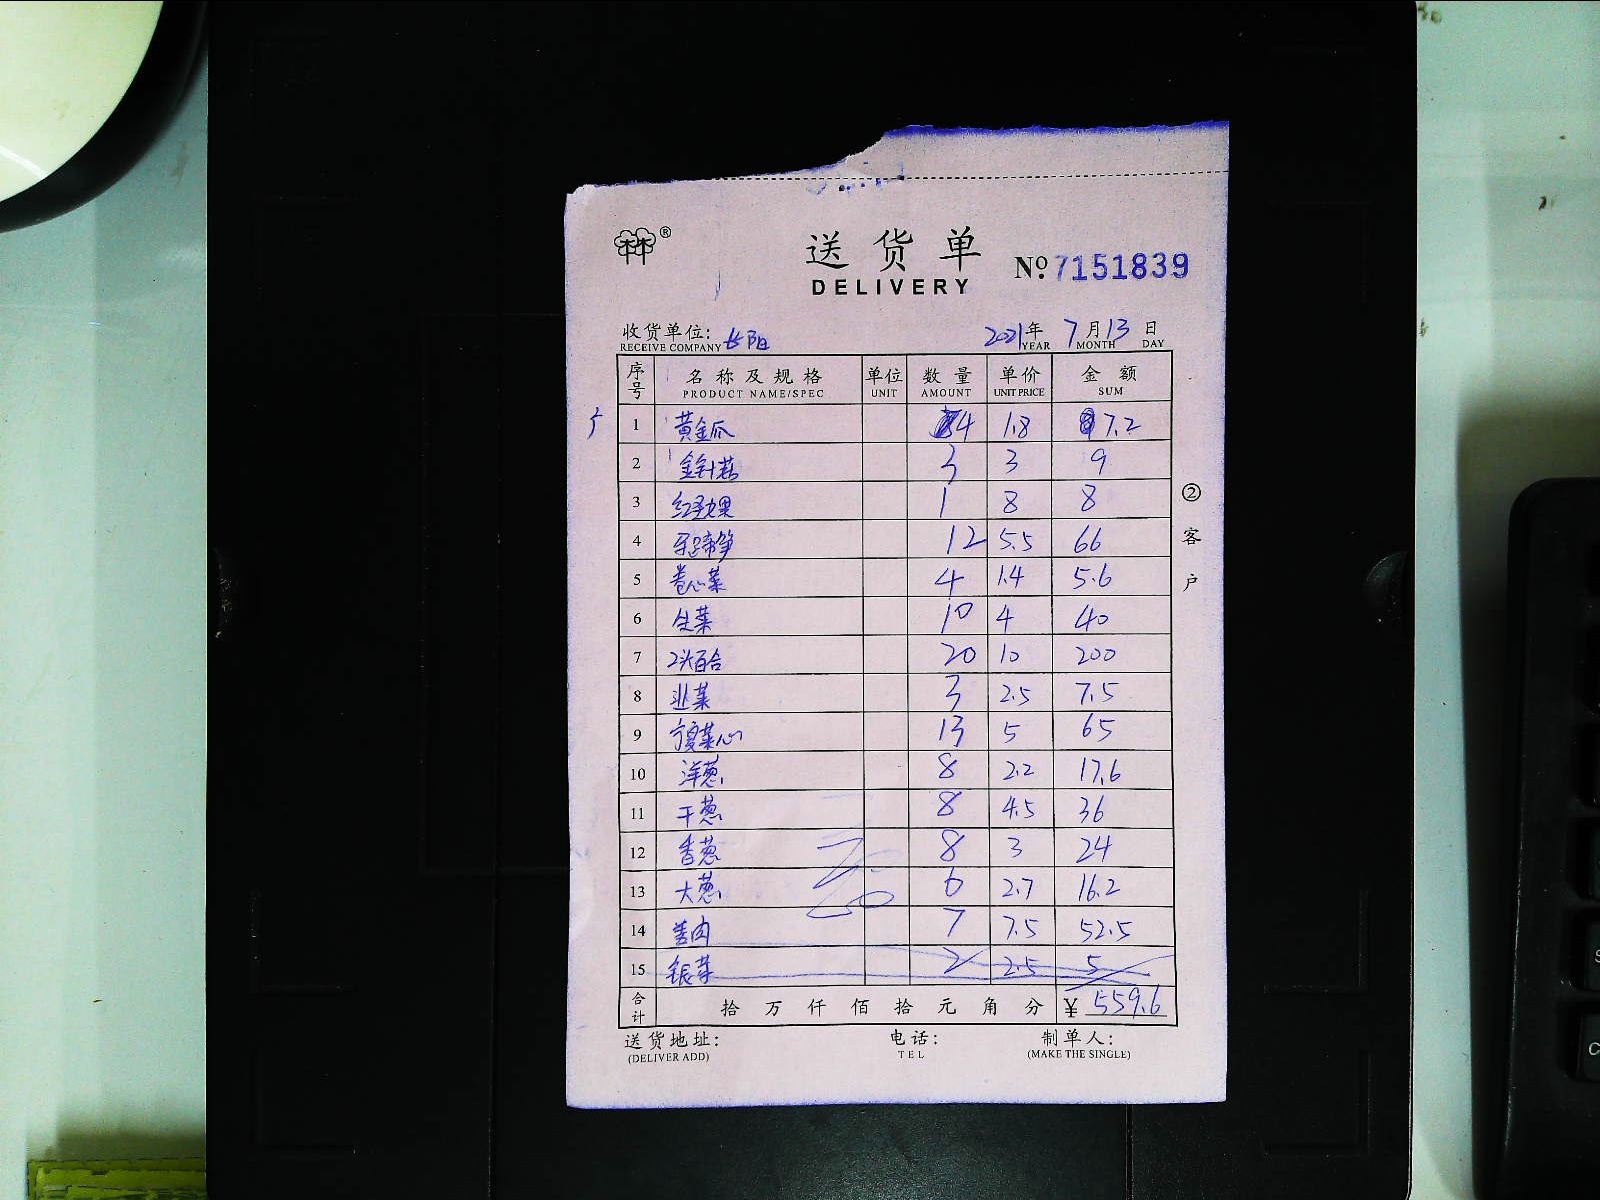 林®
送货单
DELIVERY
No. 7151839
收货单位: 长阳 2021年 7月13日
RECEIVE COMPANY YEAR MONTH DAY
序号 名称及规格 单位 数量 单价 金额
PRODUCT NAME/SPEC UNIT AMOUNT UNIT PRICE SUM
1 黄金瓜 4 1.8 7.2
2 金针菇 3 3 9
3 红圣女果 1 8 8
4 马蹄笋 12 5.5 66
5 卷心菜 4 1.4 5.6
6 生菜 10 4 40
7 2头百合 20 10 200
8 韭菜 3 2.5 7.5
9 宁夏菜心 13 5 65
10 洋葱 8 2.2 17.6
11 干葱 8 4.5 36
12 香葱 8 3 24
13 大葱 6 2.7 16.2
14 姜肉 7 7.5 52.5
15 银菜 2 2.5 5
合计 拾 万 仟 佰 拾 元 角 分 ¥ 559.6
送货地址: 电话: 制单人:
(DELIVER ADD) TEL (MAKE THE SINGLE)
②客户